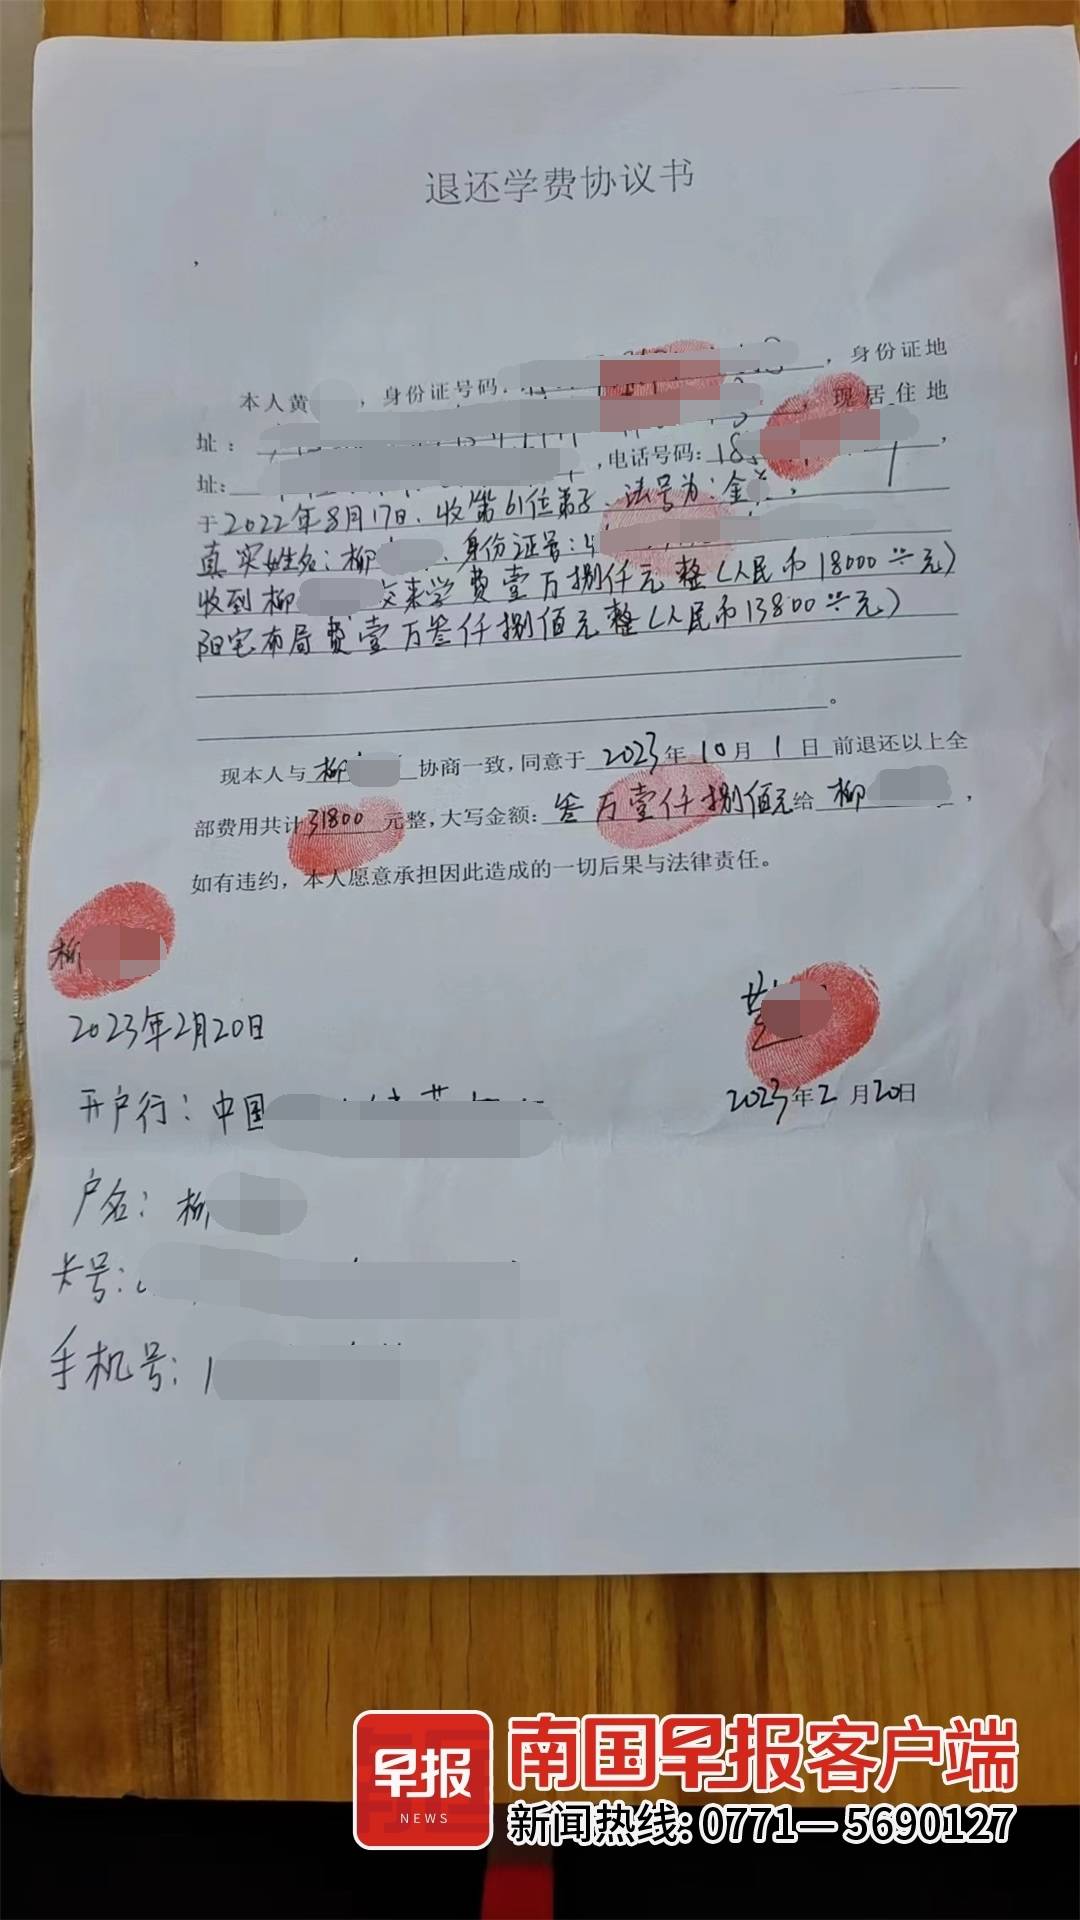 退还学费协议书
本人黄 ,身份证号码: ,身份证地
址: ,现居住地
址: ,电话号码:18
于2022年8月17日、收第61位弟子、法号为:金 ,
真实姓名:柳 、身份证号:4
收到柳 交来学费壹万捌仟元整(人民币18000元)
阳宅布局费壹万叁仟捌佰元整(人民币13800元)
。
现本人与柳 协商一致,同意于2023年10月1日前退还以上全
部费用共计31800元整,大写金额:叁万壹仟捌佰元给柳 ,
如有违约,本人愿意承担因此造成的一切后果与法律责任。
柳
黄
2023年2月20日
2023年2月20日
开户行:中国
户名:柳
卡号:
手机号:1
早报
NEWS
南国早报客户端
新闻热线:0771—5690127